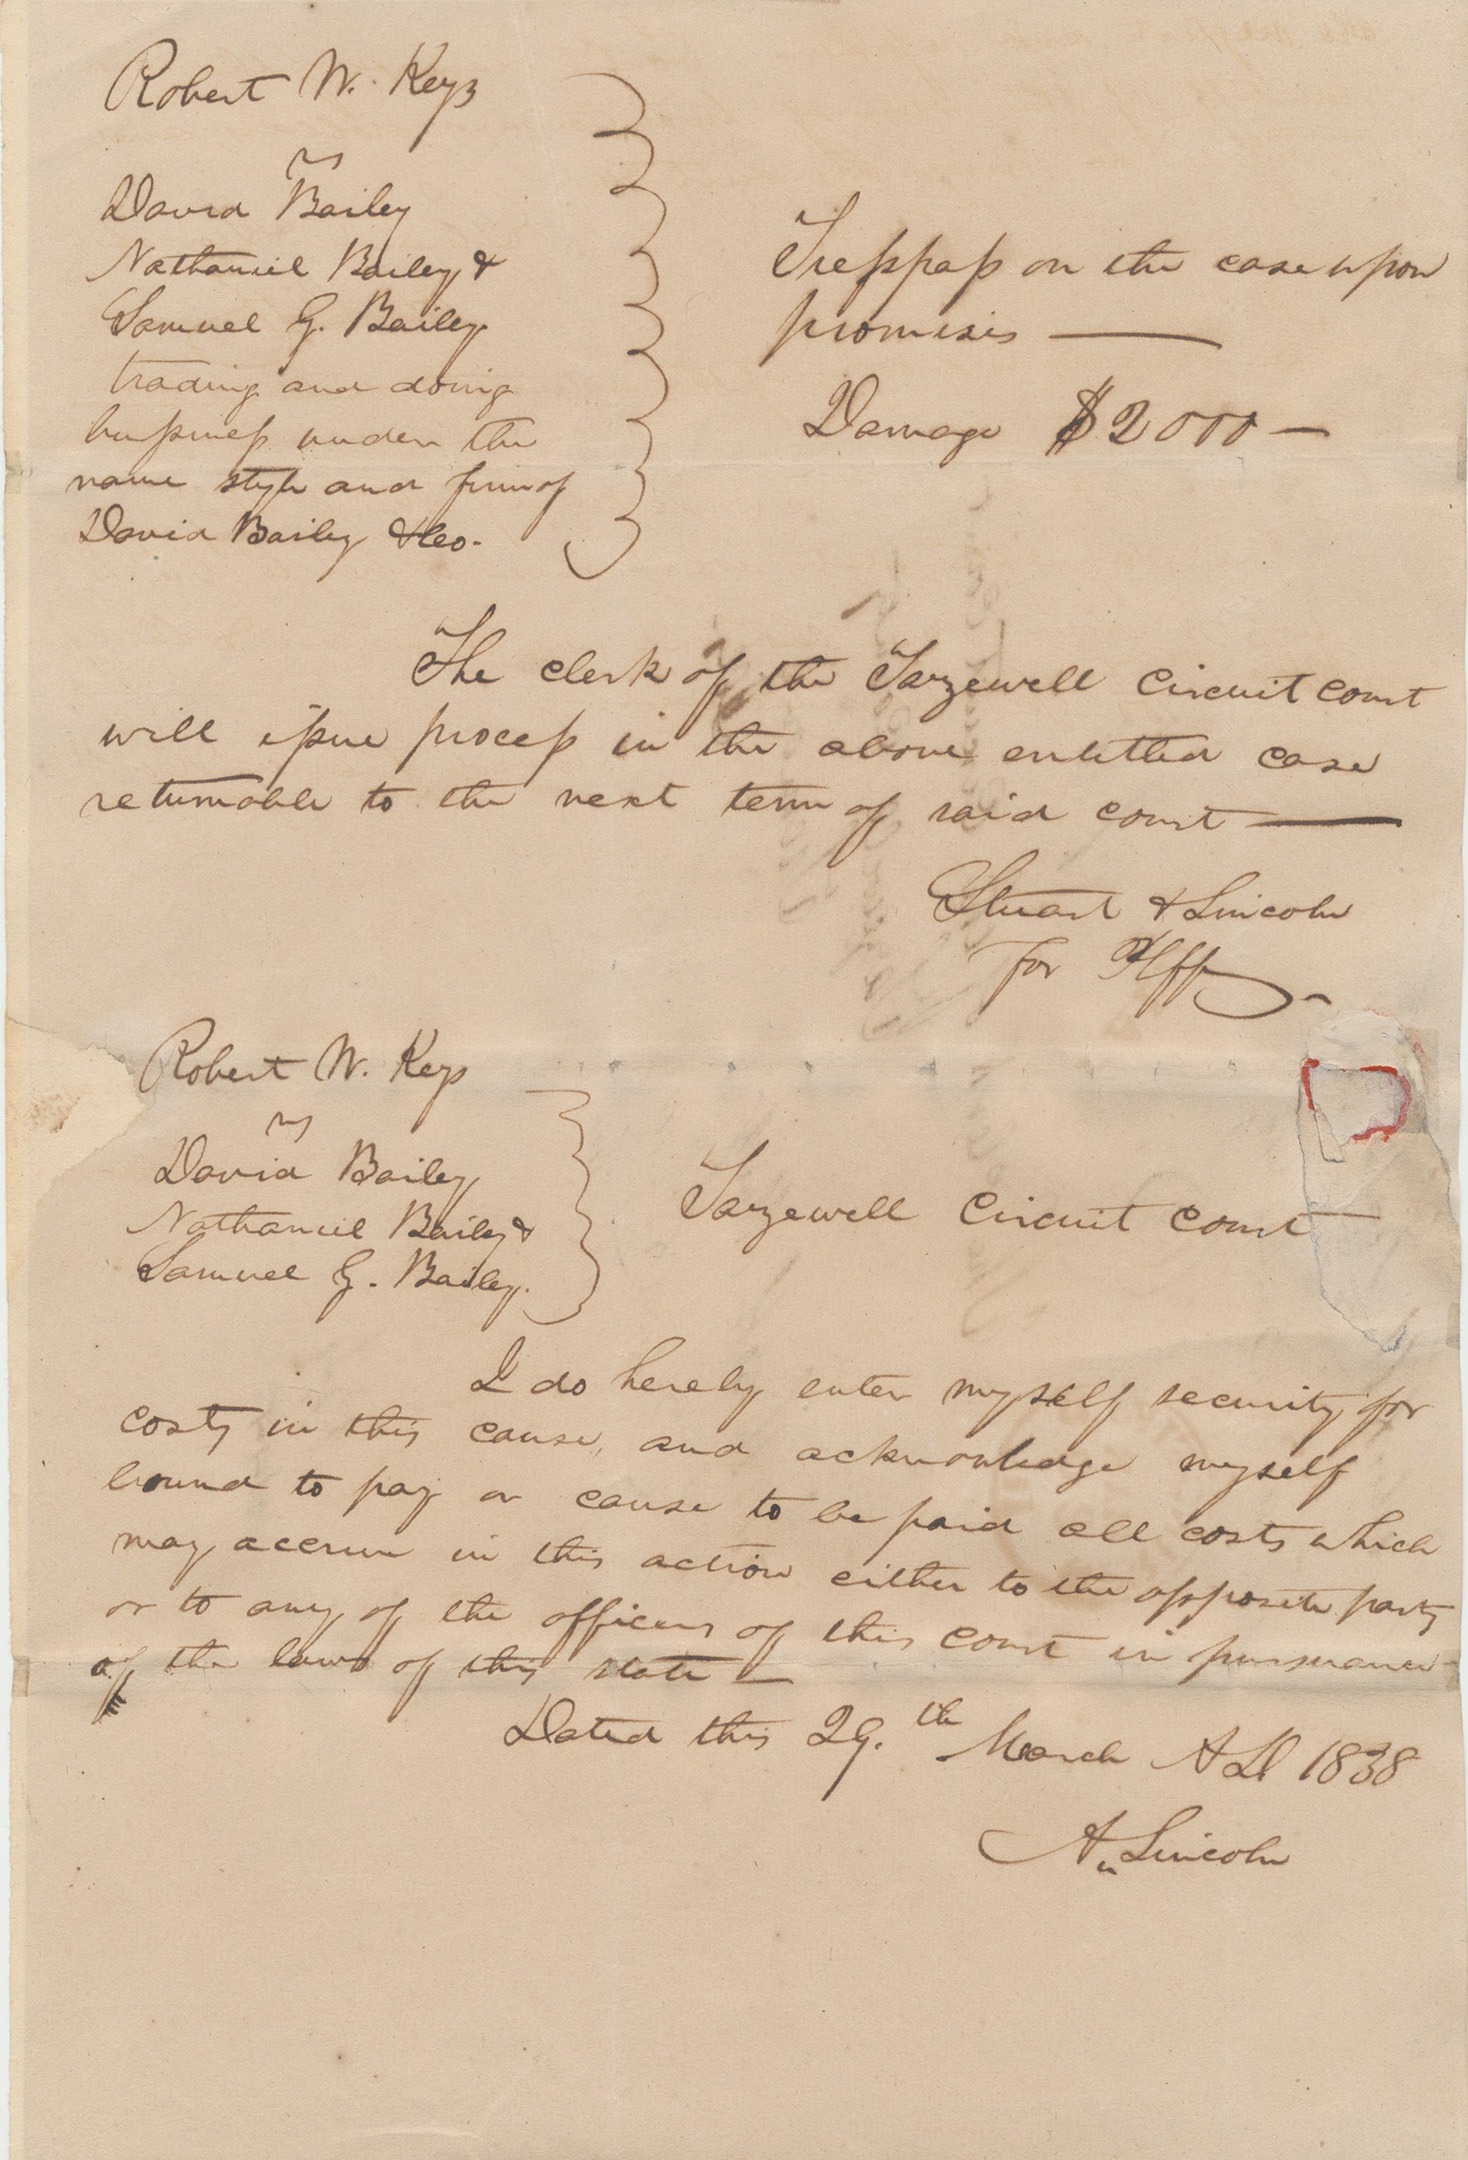 Robert W. Keys
vs
David Bailey
Nathaniel Bailey &
Samuel G. Bailey
trading and doing
business under the
name style and firm of
David Bailey & Co.
Trespass on the case upon
promises —
Damage $2000 —
The clerk of the Tazewell circuit court
will issue process in the above entitled case
returnable to the next term of said court —
Stuart & Lincoln
for Plff
Robert W. Keys
vs
David Bailey
Nathaniel Bailey &
Samuel G. Bailey.
Tazewell circuit court —
I do hereby enter myself security for
costs in this cause, and acknowledge myself
bound to pay or cause to be paid all costs which
may accrue in this action either to the opposite party
or to any of the officers of this court in pursuance
of the laws of this state —
Dated this 29.th March AD 1838
A. Lincoln